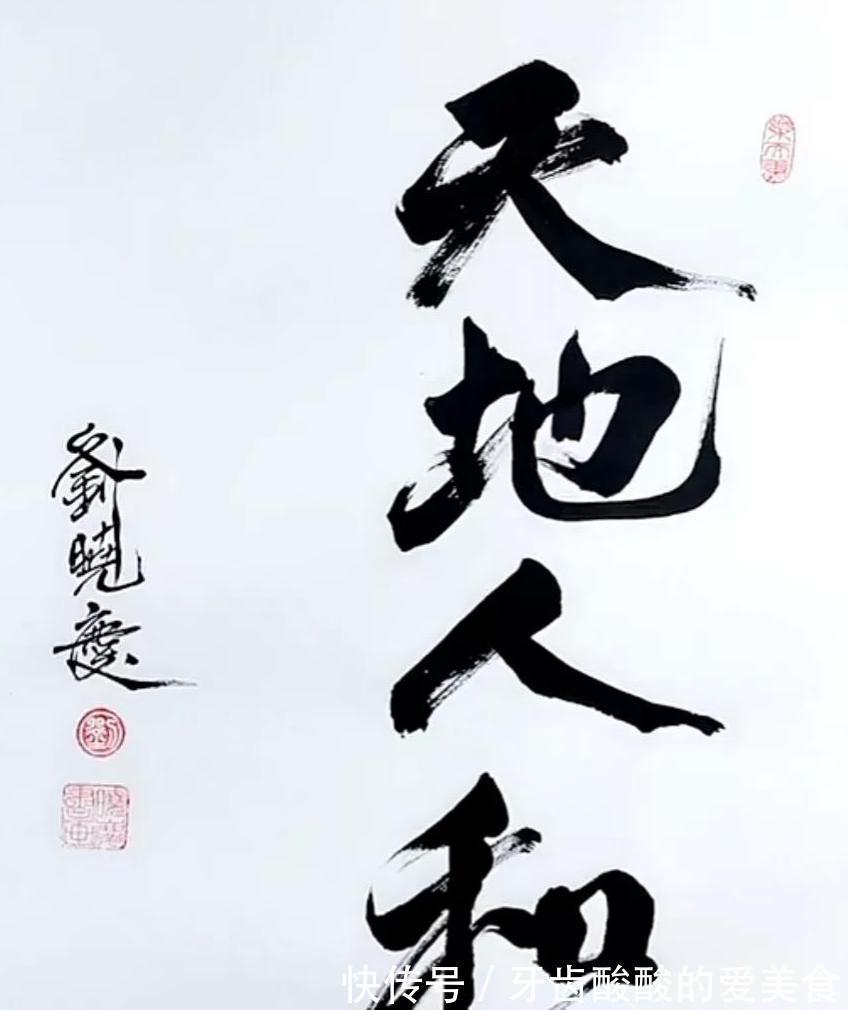 天地人和
劉曉慶
劉
快传号 / 牙齿酸酸的爱美食